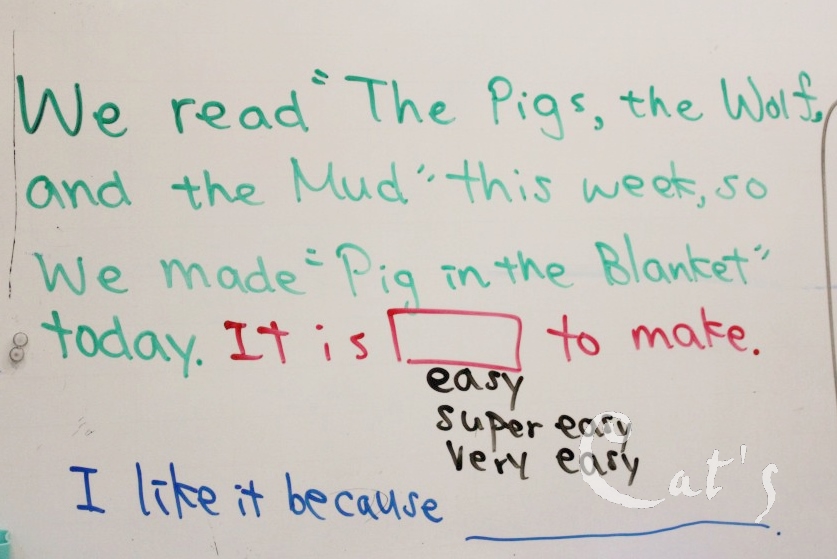 We read "The Pigs, the Wolf,
and the Mud" this week, so
We made "Pig in the Blanket"
today. It is to make.
easy
super easy
very easy
I like it because .
Cat's